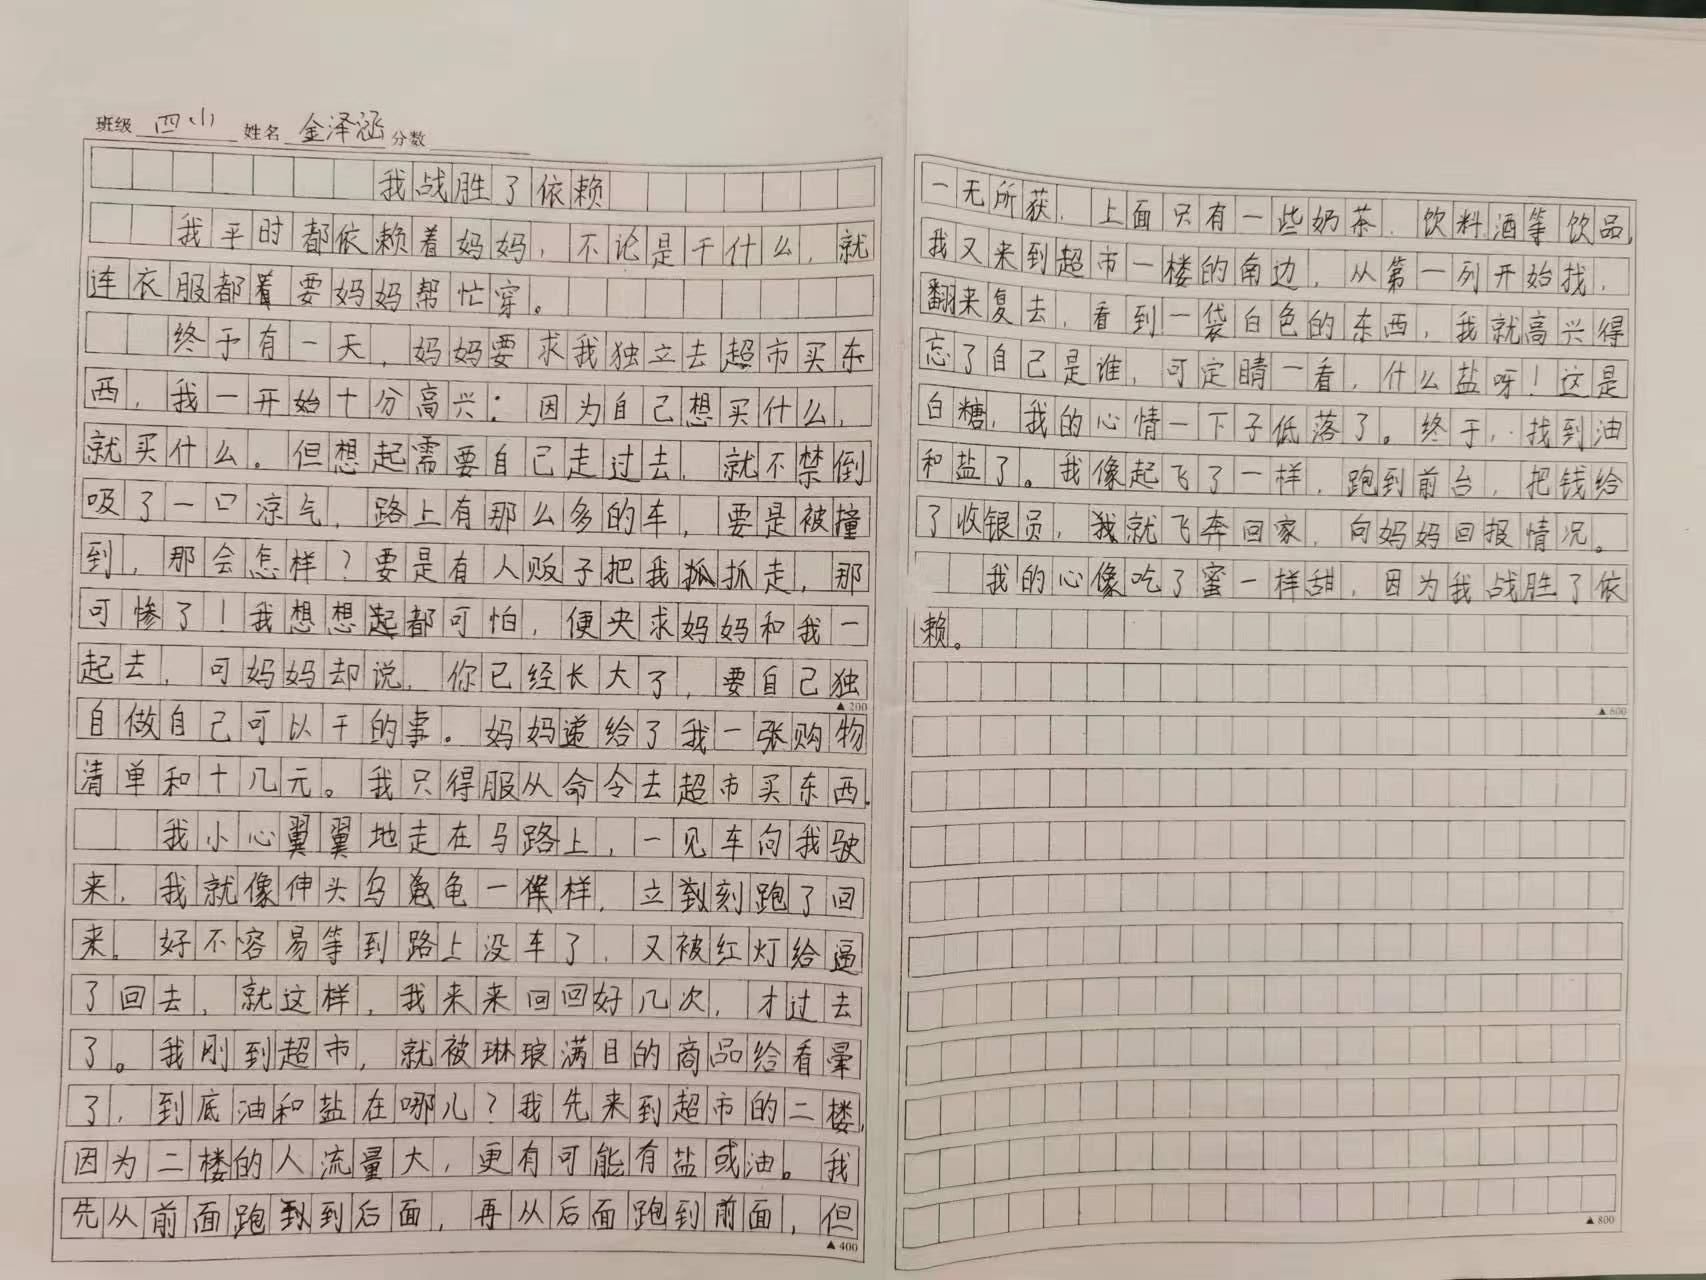 班级 四小 姓名 金泽涵 分数
我战胜了依赖
我平时都依赖着妈妈，不论是干什么，就
连衣服都着要妈妈帮忙穿。
终于有一天，妈妈要求我独立去超市买东
西，我一开始十分高兴：因为自己想买什么，
就买什么。但想起需要自己走过去，就不禁倒
吸了一口凉气，路上有那么多的车，要是被撞
到，那会怎样？要是有人贩子把我抓走，那
可惨了！我想想起都可怕，便央求妈妈和我一
起去，可妈妈却说，你已经长大了，要自己独
自做自己可以干的事。妈妈递给了我一张购物
▲200
清单和十几元。我只得服从命令去超市买东西。
我小心翼翼地走在马路上，一见车向我驶
来，我就像伸头乌龟一样，立刻跑了回
来。好不容易等到路上没车了，又被红灯给逼
了回去，就这样，我来来回回好几次，才过去
了。我刚到超市，就被琳琅满目的商品给看晕
了，到底油和盐在哪儿？我先来到超市的二楼，
因为二楼的人流量大，更有可能有盐或油。我
先从前面跑到后面，再从后面跑到前面，但
▲400
一无所获，上面只有一些奶茶、饮料酒等饮品，
我又来到超市一楼的角边，从第一列开始找，
翻来复去，看到一袋白色的东西，我就高兴得
忘了自己是谁，可定睛一看，什么盐呀！这是
白糖，我的心情一下子低落了。终于，找到油
和盐了。我像起飞了一样，跑到前台，把钱给
了收银员，我就飞奔回家，向妈妈回报情况。
我的心像吃了蜜一样甜，因为我战胜了依
赖。
▲600
▲800